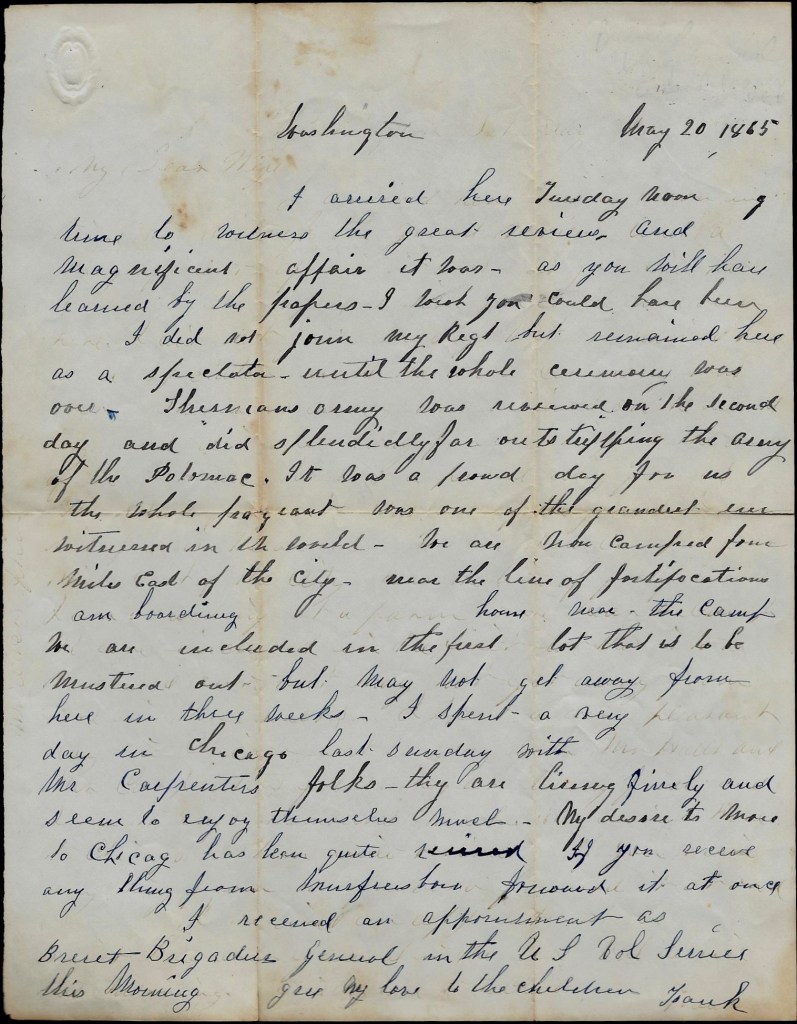 Washington May 20, 1865
My Dear Wife
I arrived here Tuesday noon
time to witness the great review and
magnificent affair it was - as you will have
learned by the papers - I wish you could have been
I did not join my Regt but remained here
as a spectator - until the whole ceremony was
over - Shermans army was reviewed on the second
day and did splendidly far outstripping the army
of the Potomac. It was a proud day for us
the whole pageant was one of the grandest ever
witnessed in the world - We are now camped four
miles East of the City - near the line of fortifocations
I am boarding at a farm house near - the camp
We are included in the first lot that is to be
mustered out - but may not get away from
here in three weeks - I spent a very pleasant
day in Chicago last sunday with
Mr Carpenters folks - they are living finely and
seem to enjoy themselves much - My desire to move
to Chicag has been quite If you receive
any thing from Murfreesboro forward it at once
I received an appointment as
Brevet Brigadier General in the U S Vol Service
this Morning give my love to the children Frank